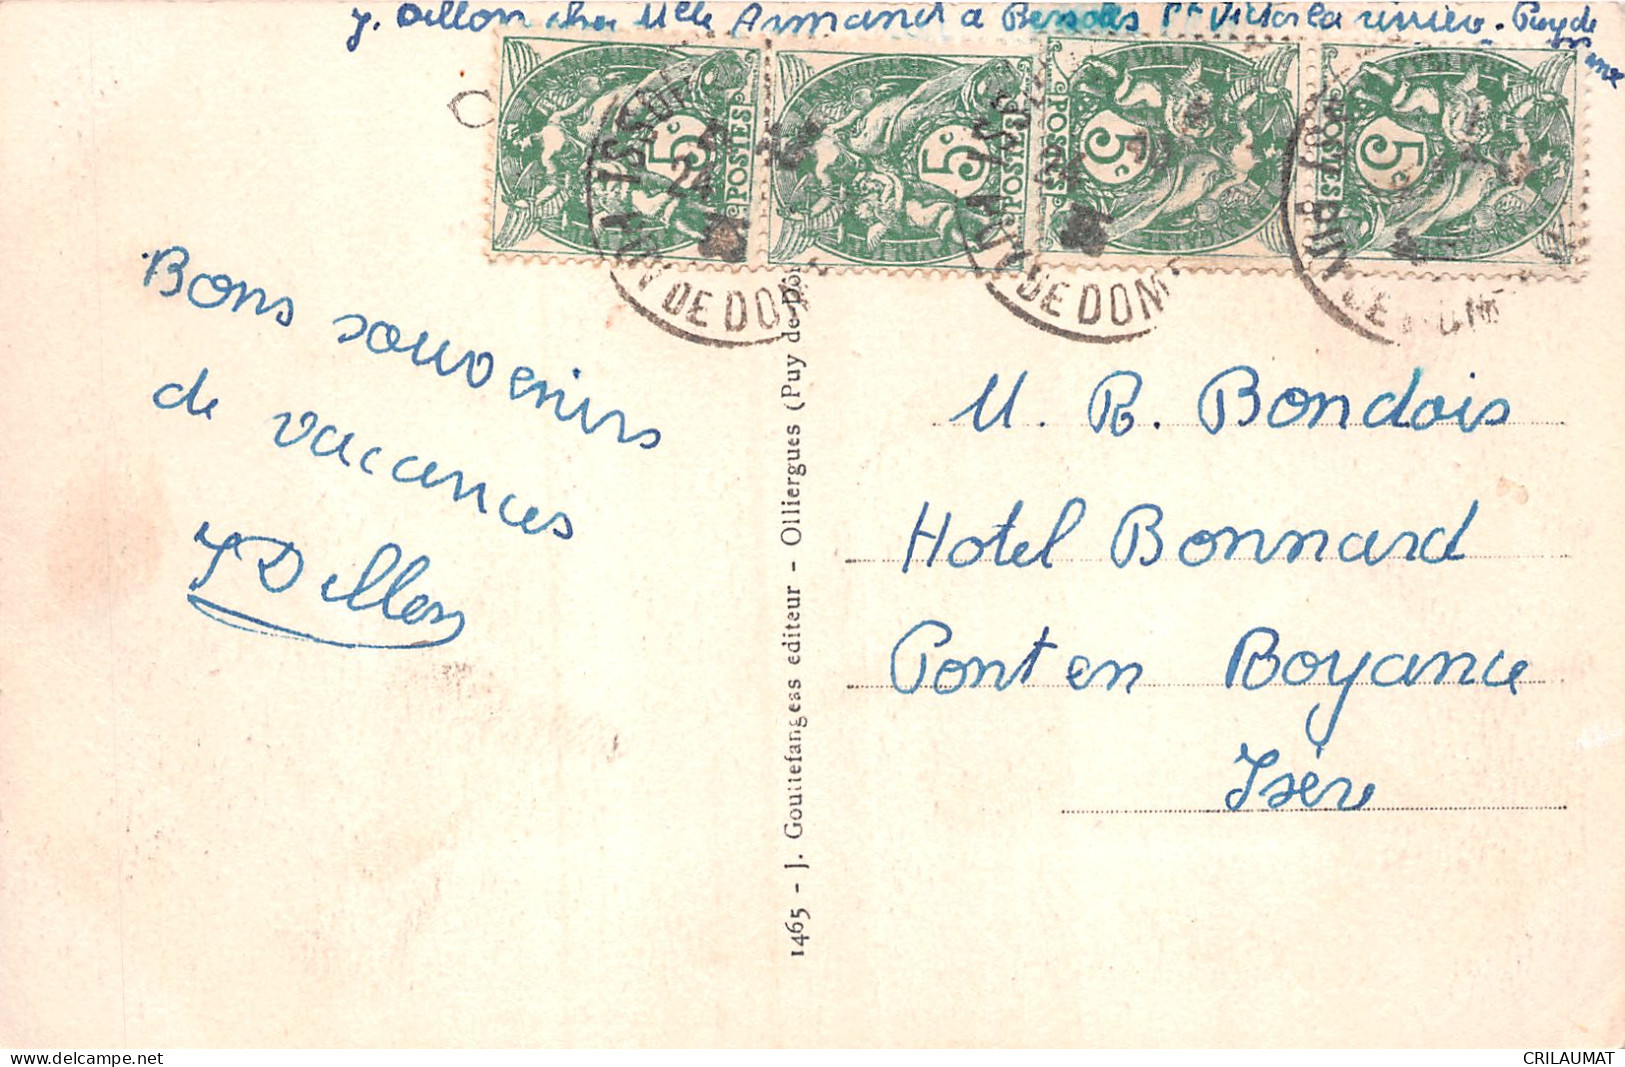 J. Dillon chez Mlle Armand à Bessoles St Victor la rivière. Puy de
Dôme
5c
POSTES
5c
POSTES
5c
POSTES
5c
POSTES
PUY DE DOME
PUY DE DOME
PUY DE DOME
Bons souvenirs
de vacances
J Dillon
1465 - J. Gouttefangeas editeur - Olliergues (Puy de-Dôm
M. R. Bondois
Hotel Bonnard
Pont en Royance
Isère
CRILAUMAT